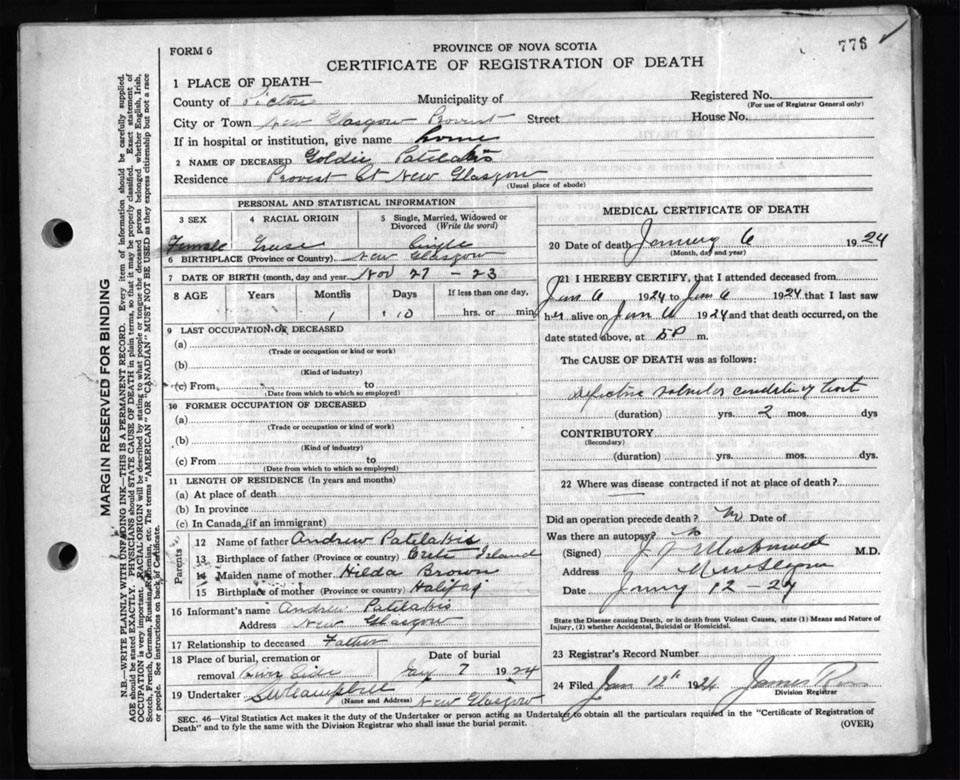 776
FORM 6
PROVINCE OF NOVA SCOTIA
CERTIFICATE OF REGISTRATION OF DEATH
1 PLACE OF DEATH—
County of Pictou Municipality of Registered No.
(For use of Registrar General only)
City or Town New Glasgow Provost Street House No.
If in hospital or institution, give name home
2 NAME OF DECEASED Goldie Patelakis
Residence Provost St New Glasgow
(Usual place of abode)
PERSONAL AND STATISTICAL INFORMATION
3 SEX 4 RACIAL ORIGIN 5 Single, Married, Widowed or Divorced (Write the word)
Female Single
6 BIRTHPLACE (Province or Country) New Glasgow
7 DATE OF BIRTH (month, day and year) Nov 27 - 23
8 AGE Years Months Days If less than one day,
1 10 hrs. or min.
9 LAST OCCUPATION OF DECEASED
(a)
(Trade or occupation or kind or work)
(b)
(Kind of industry)
(c) From to
(Date from which to which so employed)
10 FORMER OCCUPATION OF DECEASED
(a)
(Trade or occupation or kind of work)
(b)
(Kind of industry)
(c) From to
(Date from which to which so employed)
11 LENGTH OF RESIDENCE (In years and months)
(a) At place of death
(b) In province
(c) In Canada (if an immigrant)
Parents
12 Name of father Andrew Patelakis
13 Birthplace of father (Province or country) Crete Island
14 Maiden name of mother Hilda Brown
15 Birthplace of mother (Province or country) Halifax
16 Informant's name Andrew Patelakis
Address New Glasgow
17 Relationship to deceased Father
18 Place of burial, cremation or removal River Side Date of burial Jany 7 1924
19 Undertaker SW Campbell New Glasgow
(Name and Address)
MEDICAL CERTIFICATE OF DEATH
20 Date of death January 6 1924
(Month, day and year)
21 I HEREBY CERTIFY, that I attended deceased from
Jan 6 1924 to Jan 6 1924 that I last saw
her alive on Jan 6 1924 and that death occurred, on
date stated above, at 5 P m.
The CAUSE OF DEATH was as follows:
Defective condition of heart
(duration) yrs. 2 mos. dys
CONTRIBUTORY
(Secondary)
(duration) yrs. mos. dys.
22 Where was disease contracted if not at place of death?
Did an operation precede death? No Date of
Was there an autopsy? No
(Signed) M.D.
Address New Glasgow
Jany 12 - 24
State the Disease causing Death, or in death from Violent Causes, state (1) Means and Nature of Injury, (2) whether Accidental, Suicidal or Homicidal.
23 Registrar's Record Number
24 Filed Jan 12th 1924 James
Division Registrar
SEC. 46—Vital Statistics Act makes it the duty of the Undertaker or person acting as Undertaker to obtain all the particulars required in the "Certificate of Registration of
Death" and to fyle the same with the Division Registrar who shall issue the burial permit. (OVER)
MARGIN RESERVED FOR BINDING
N.B.—WRITE PLAINLY WITH UNFADING INK—THIS IS A PERMANENT RECORD. Every item of information should be carefully supplied.
AGE should be stated EXACTLY. PHYSICIANS should STATE CAUSE OF DEATH in plain terms, so that it may be properly classified. Exact statement of
OCCUPATION is very important. RACIAL ORIGIN will be described by stating to what people or tongue the deceased person belonged whether English, Irish,
Scotch, French, German, Russian, etc. The terms "AMERICAN" OR "CANADIAN" MUST NOT BE USED as they express citizenship but not a race
or people. See instructions on back of Certificate.